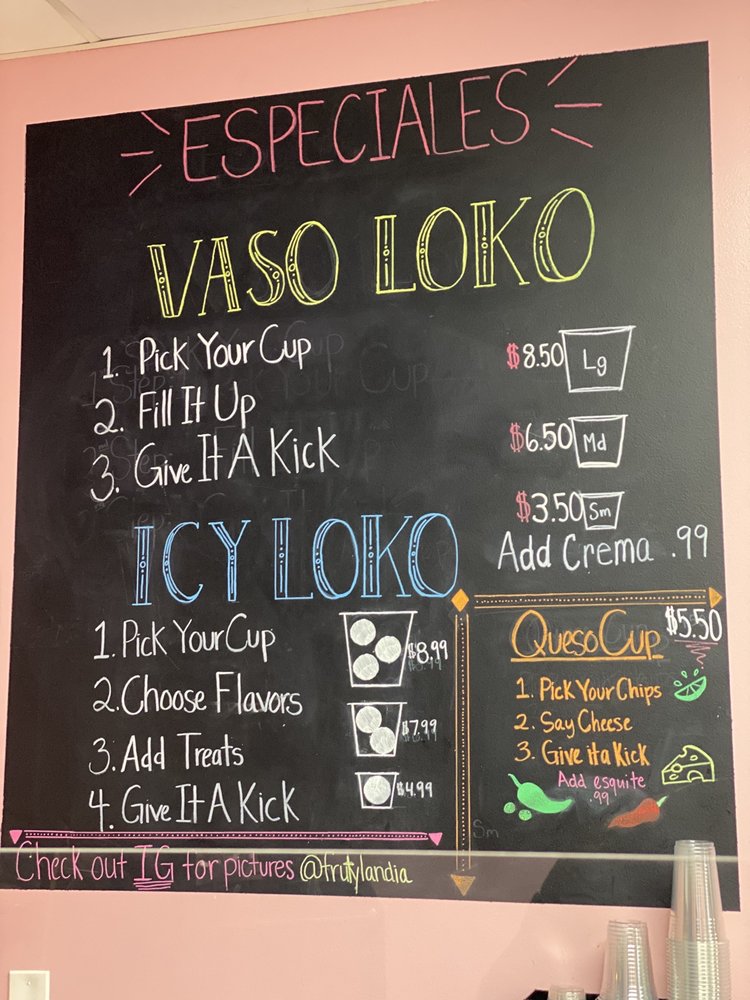 ESPECIALES
VASO LOKO
1. Pick Your Cup
2. Fill It Up
3. Give It A Kick
$8.50 Lg
$6.50 Md
$3.50 Sm
Add Crema .99
ICY LOKO
1. Pick Your Cup
2. Choose Flavors
3. Add Treats
4. Give It A Kick
$8.99
$7.99
$4.99
Queso Cup $5.50
1. Pick Your Chips
2. Say Cheese
3. Give it a Kick
Add esquite
.99
Sm
Check out IG for pictures @frutylandia